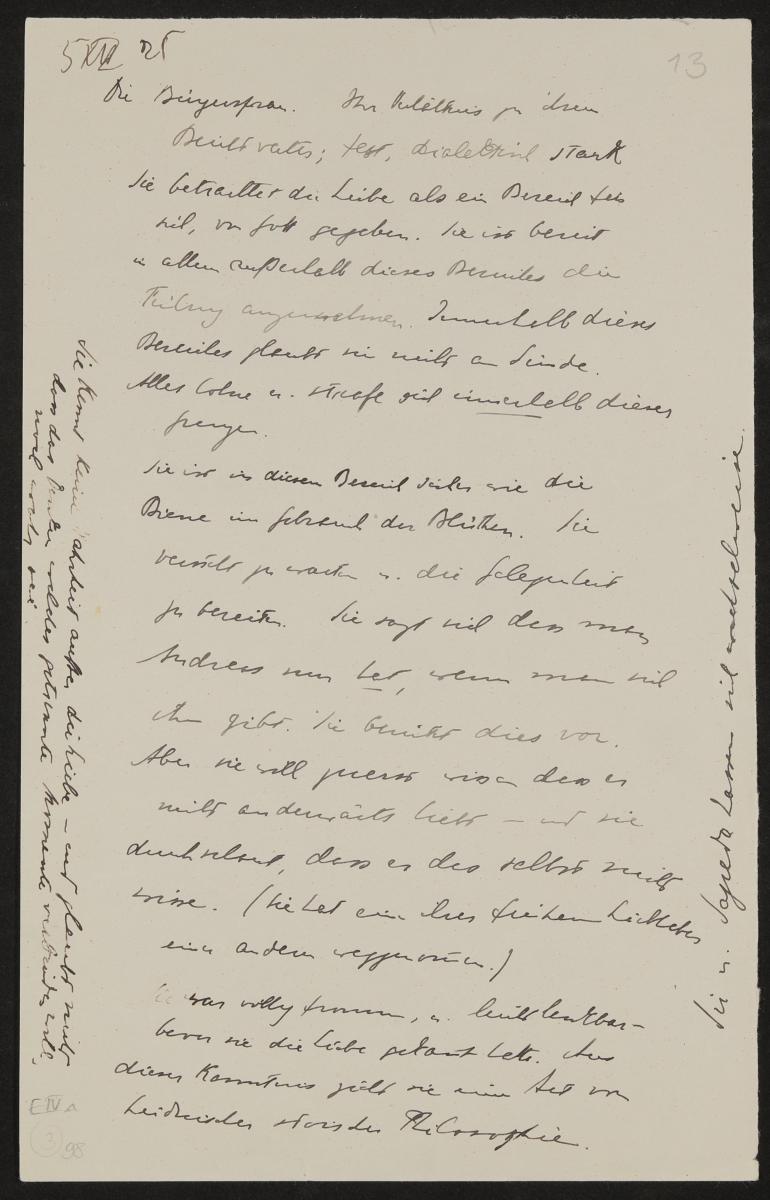 5 XII 25
13
Die Bürgersfrau. Ihr Verhältnis zu ihrem
Beichtvater; fest, dialektisch stark
Sie betrachtet die Liebe als ein Bereich für
sich, von Gott gegeben. Sie ist bereit
in allem außerhalb dieses Bereiches die
Führung anzunehmen. Innerhalb dieses
Bereiches glaubt sie nicht an Sünde.
Alles Lohn u. Strafe sind innerhalb dieser
Grenzen.
Sie ist in diesem Bereich sicher wie die
Biene im Gebrauch der Blüthen. Sie
versteht zu warten u. die Gelegenheit
zu bereiten. Sie sagt sich dass man
Andreas nur hat, wenn man sich
ihm gibt. Sie bereitet dies vor.
Aber sie will zuerst wissen dass er
nicht anderwärts liebt – und sie
durchschaut, dass er das selbst nicht
wisse. (Sie hat einen ihrer früheren Liebhaber
einer anderen weggenommen.)
Sie war völlig fromm, u. leicht lenkbar –
bevor sie die Liebe gekannt hatte. Aus
dieser Kenntnis zieht sie eine Art von
heidnischer stoischer Philosophie.
Sie kennt keine Wahrheit außer die Liebe – und glaubt nicht
dass das Denken welches getrennte Momente verbinden will,
noch wahr sei.
Sie u. Sagredo hassen sich wechselweise.
E IV A
3
98